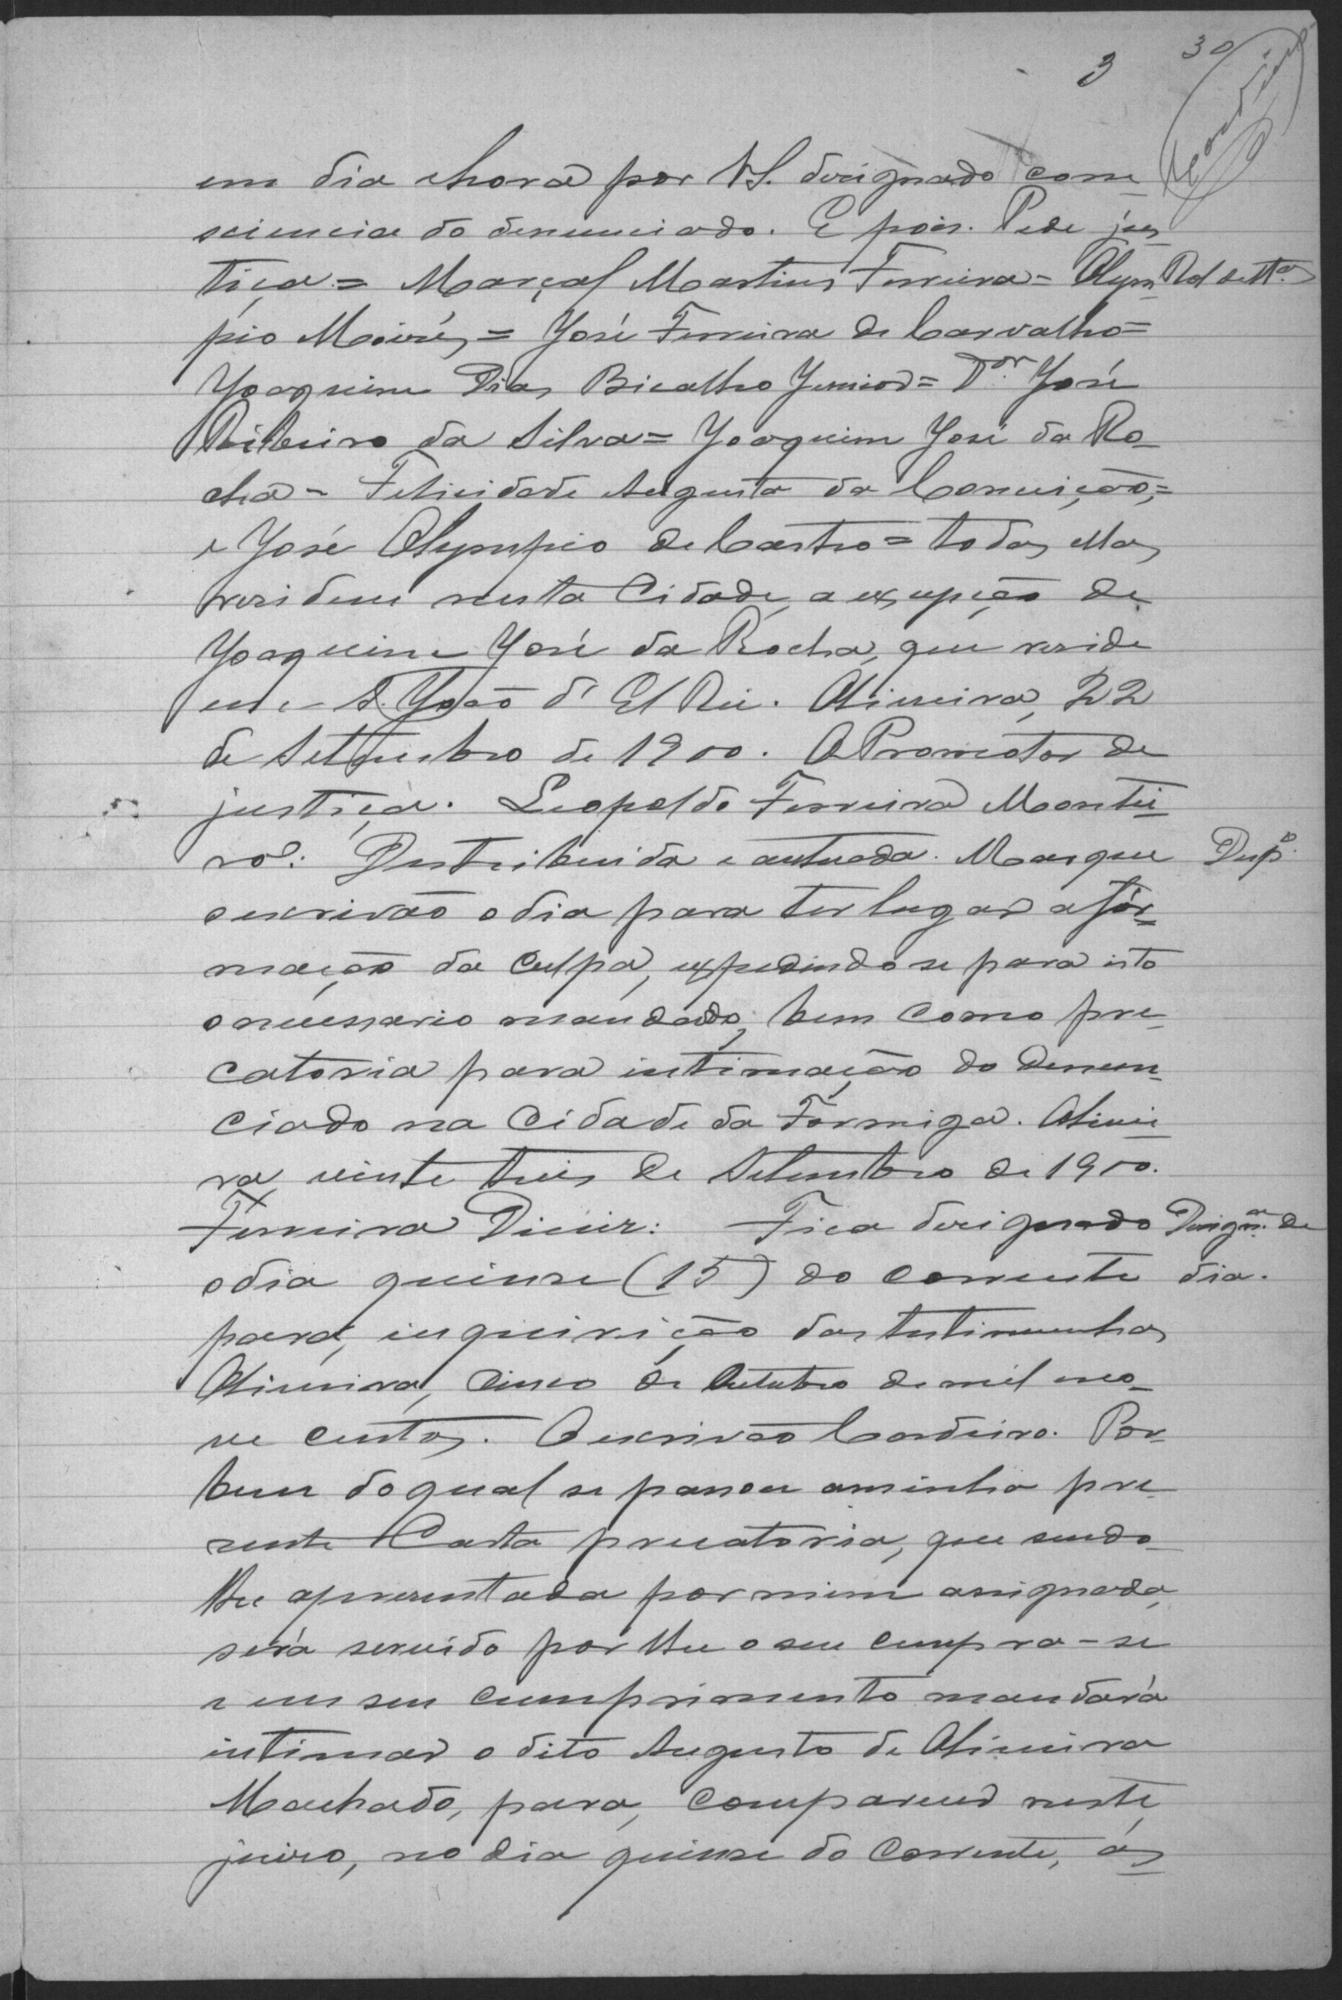 3 30
Cordeiro
em dia e hora por V S. designado com
sciencia do denunciado. E pois. Pede jus
tiça = Marçal Martins Ferreira = Olym Rol de ttas
pio Moirés = José Ferreira de Carvalho =
Joaquim Dias Bicalho Junior = Dor. José
Ribeiro da Silva = Joaquim José da Ro-
cha - Felicidade Augusta da Conceição, =
e José Olympio de Castro = todas ellas
residem nesta Cidade, a excepção de
Joaquim José da Rocha, que reside
em S. João d' El Rei. Oliveira, 22
de Settembro de 1900. O Promotor de
justiça. Leopoldo Ferreira Montei
ro. Destribuida e autuada. Marque Despo.
o escrivão o dia para ter lugar a for-
mação da culpa, expedindo se para isto
o necessario mandado, bem como pre-
catoria para intimação do denun-
ciado na Cidade da Formiga. Olivei-
ra, vinte treis de Setembro de 1900.
Ferreira Diniz: Fica designado Designam. de
o dia quinse (15) do corrente dia.
para, inquirição das testimunhas
Oliveira, cinco de Outubro de mil no-
ve centos. O escrivão Cordeiro. Por
bem do qual se passou a minha pre-
zente Carta precatoria, que sendo-
lhe apresentada por mim assignada,
será servido pôr lhe o seu cumpra-se
e em seu cumprimento mandará
intimar o dito Augusto de Oliveira
Machado, para, comparecer neste
juiso, no dia quinse do corrente, ás